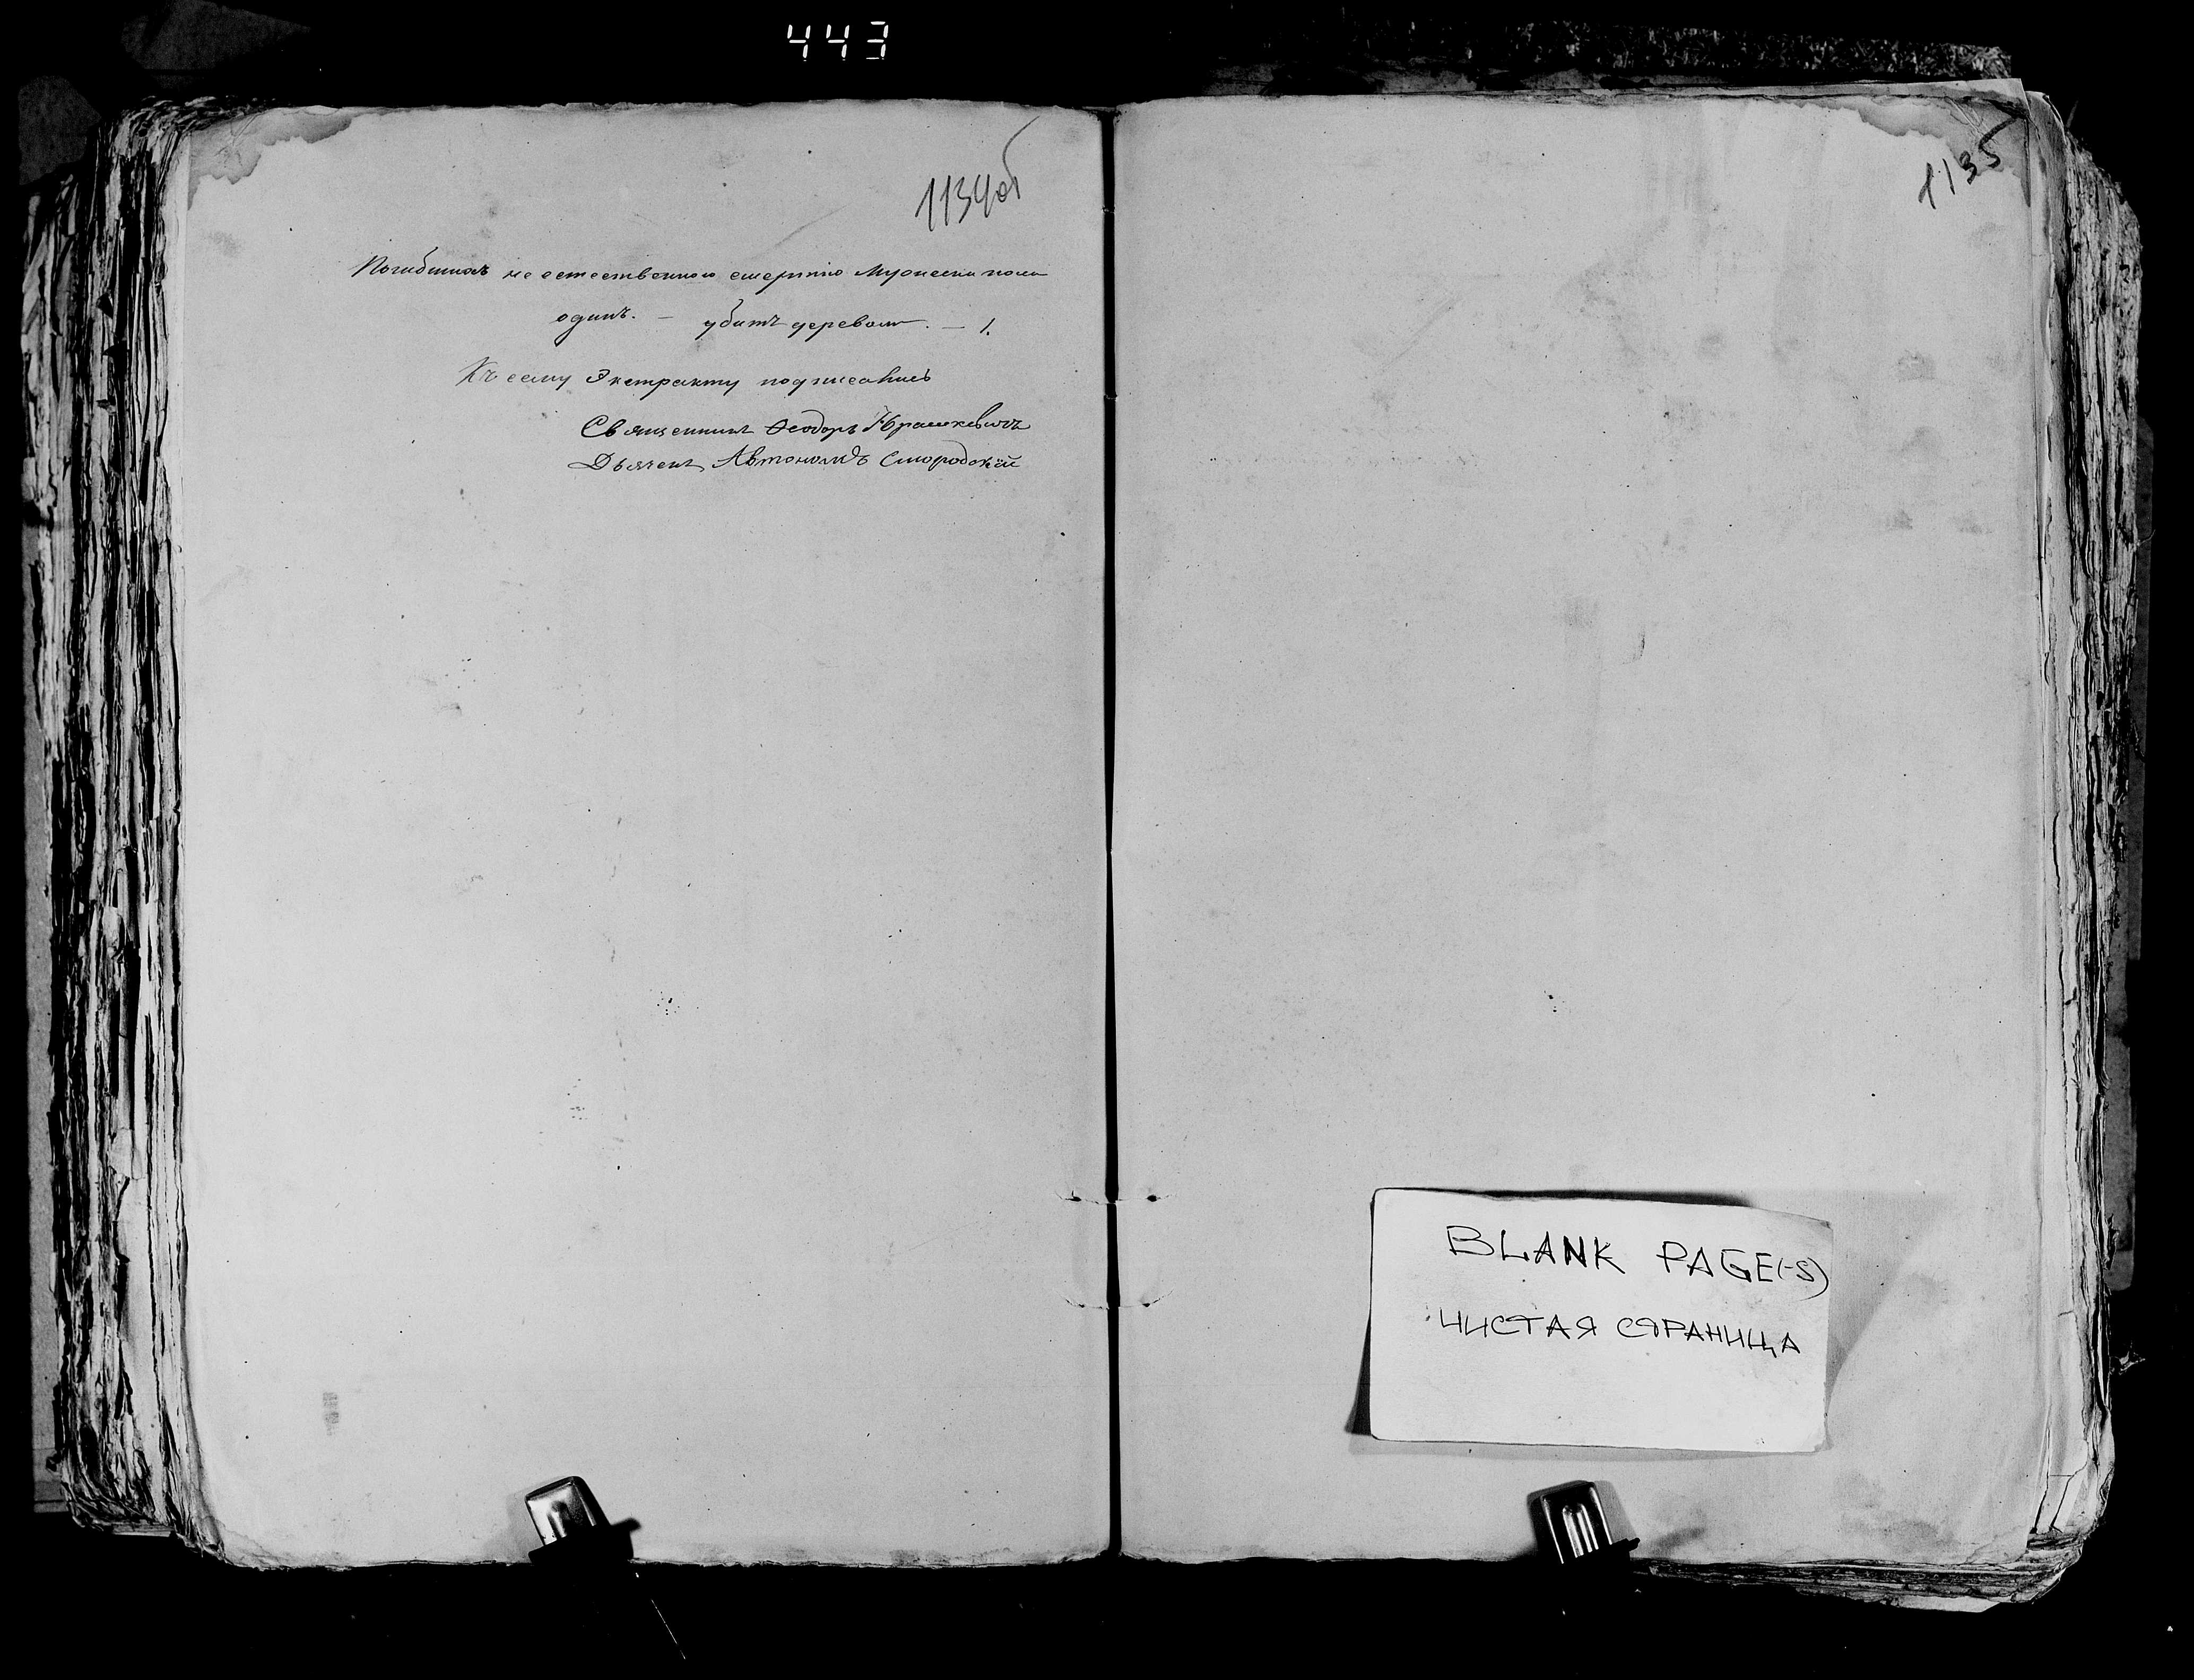 443
1134об
Погибшихъ не естественною смертію Мужеска пола
одинъ. — убитъ деревомъ. — 1.
Къ сему Экстракту подписались
Священникъ Ѳеодоръ Юрашкевичъ
Дьячекъ Автономъ Смородскій
1135
BLANK PAGE(-S)
ЧИСТАЯ СТРАНИЦА